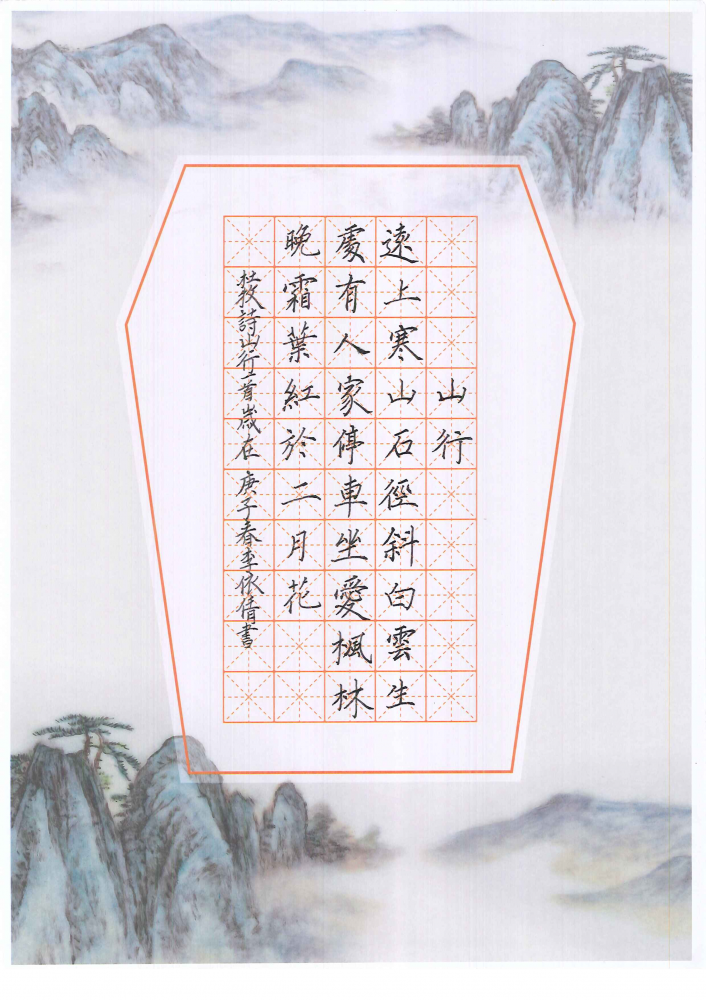 山行
遠上寒山石徑斜白雲生
處有人家停車坐愛楓林
晚霜葉紅於二月花
杜牧詩山行一首歲在庚子春李依倩書